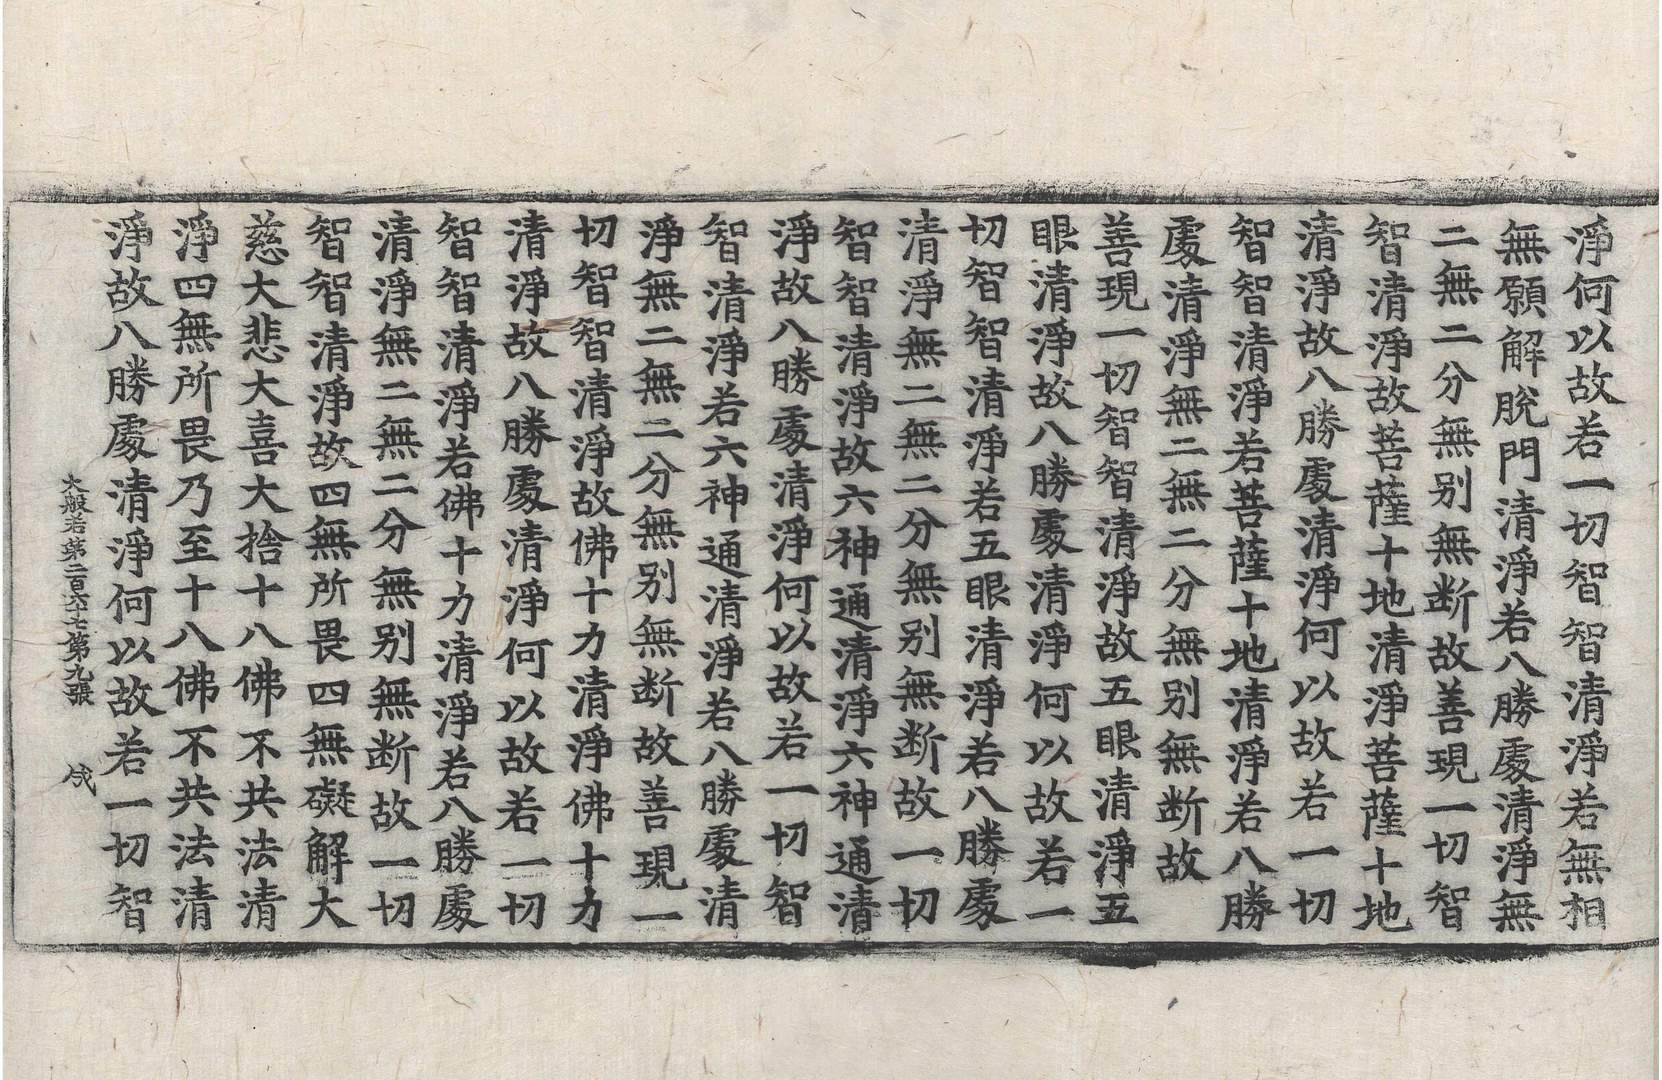 淨何以故若一切智智清淨若無相
無願解脫門清淨若八勝處清淨無
二無二分無別無断故善現一切智
智清淨故菩薩十地清淨菩薩十地
清淨故八勝處清淨何以故若一切
智智清淨若菩薩十地清淨若八勝
處清淨無二無二分無別無断故
善現一切智智清淨故五眼清淨五
眼清淨故八勝處清淨何以故若一
切智智清淨若五眼清淨若八勝處
清淨無二無二分無別無断故一切
智智清淨故六神通清淨六神通清
淨故八勝處清淨何以故若一切智
智清淨若六神通清淨若八勝處清
淨無二無二分無別無断故善現一
切智智清淨故佛十力清淨佛十力
清淨故八勝處清淨何以故若一切
智智清淨若佛十力清淨若八勝處
清淨無二無二分無別無断故一切
智智清淨故四無所畏四無礙解大
慈大悲大喜大捨十八佛不共法清
淨四無所畏乃至十八佛不共法清
淨故八勝處清淨何以故若一切智
大般若第二百六七第九張